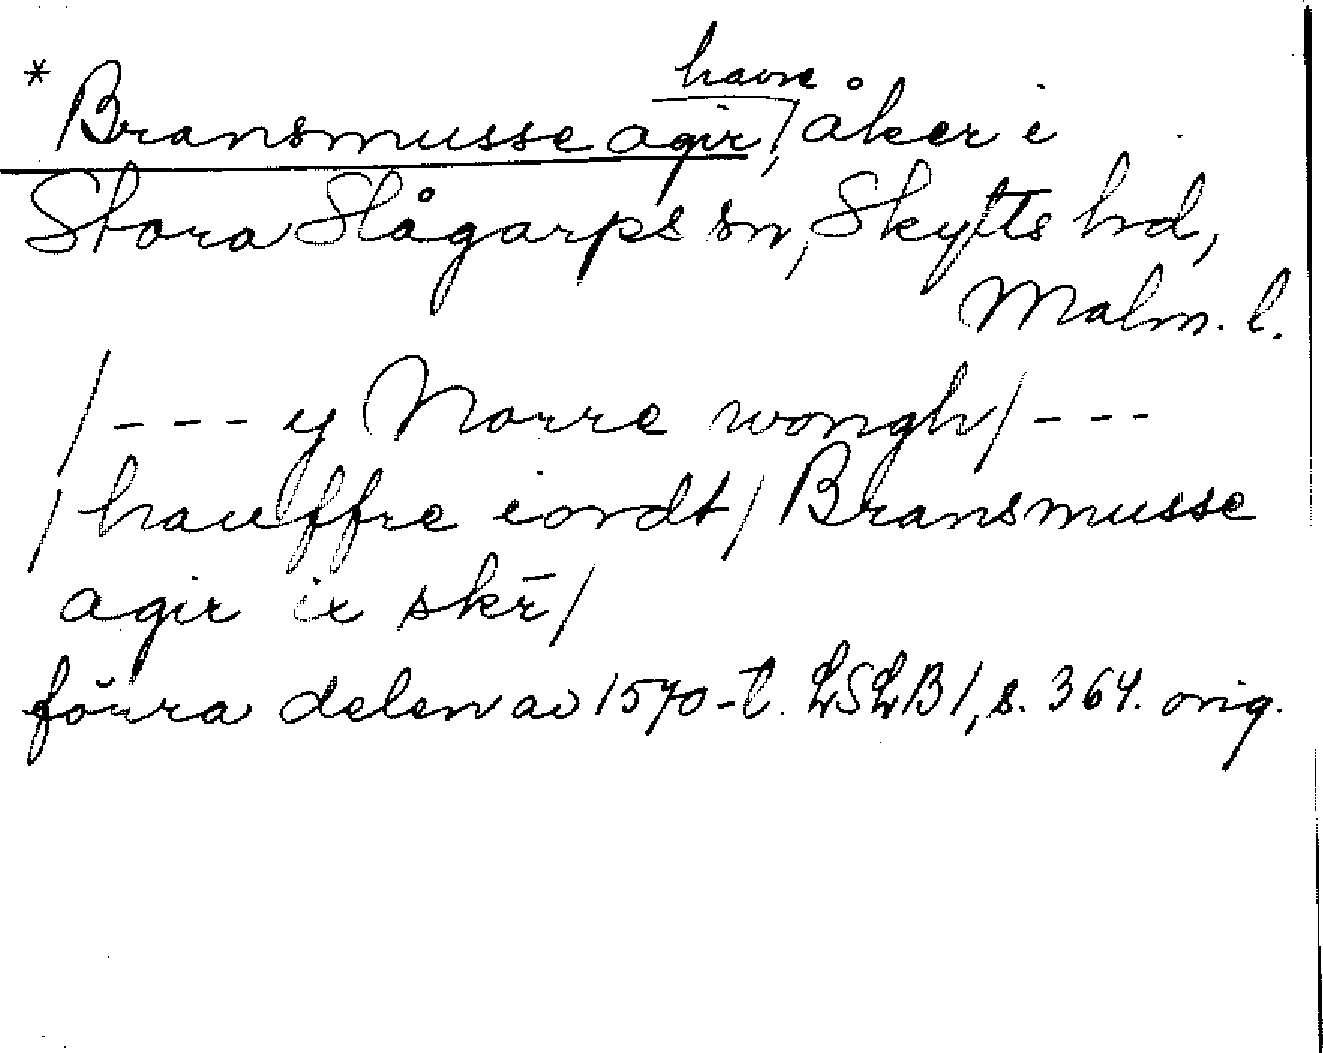 havre
* Bransmusse agir, åker i
Stora Slågarps sn, Skytts hd,
Malm. l.
/--- y Norre wongh/---
/hauffre iordt/ Bransmusse
agir ix skr̄/
förra delen av 1570-t. LSLB 1, s. 364. orig.